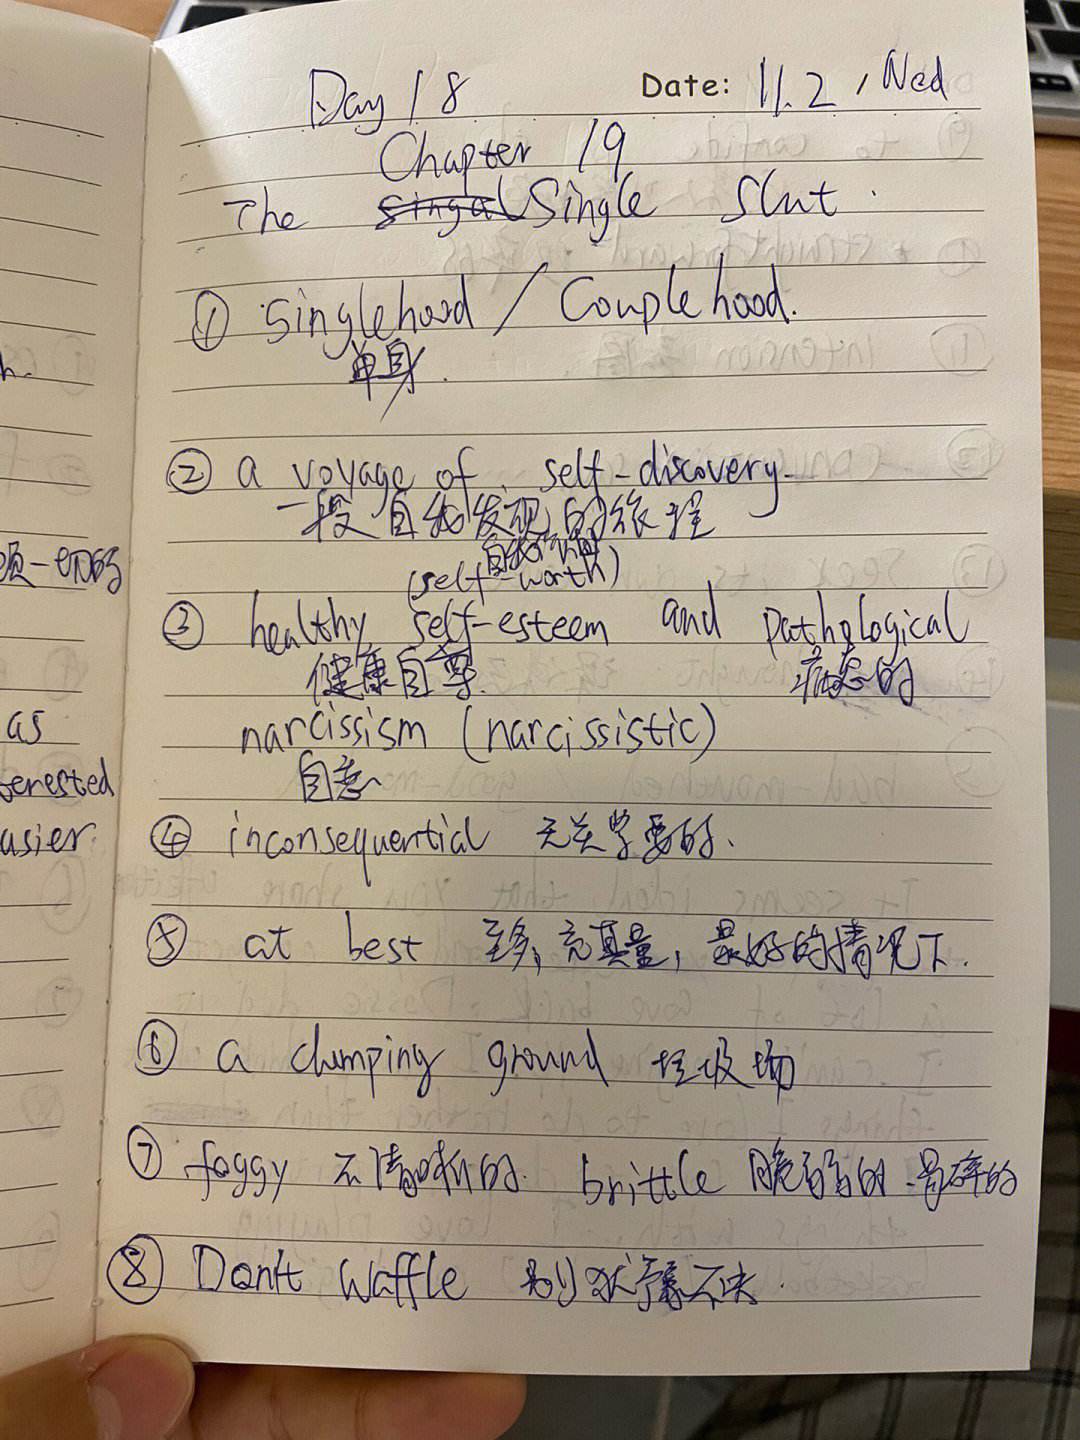 Day 18 Date: 11.2, Wed
Chapter 19
The singal Single Slut.
① Singlehood / Couplehood.
单身.
② a voyage of self-discovery
一段自我发现的旅程
(self-worth)
③ healthy self-esteem and pathological
健康自尊. 病态的
narcissism (narcissistic)
自恋
④ inconsequential 无关紧要的.
⑤ at best 至多, 充其量, 最好的情况下.
⑥ a dumping ground 垃圾场
⑦ foggy 不清晰的. brittle 脆弱的 易碎的
⑧ Don't waffle 别犹豫不决.
h.
一切的
as
terested
asier.